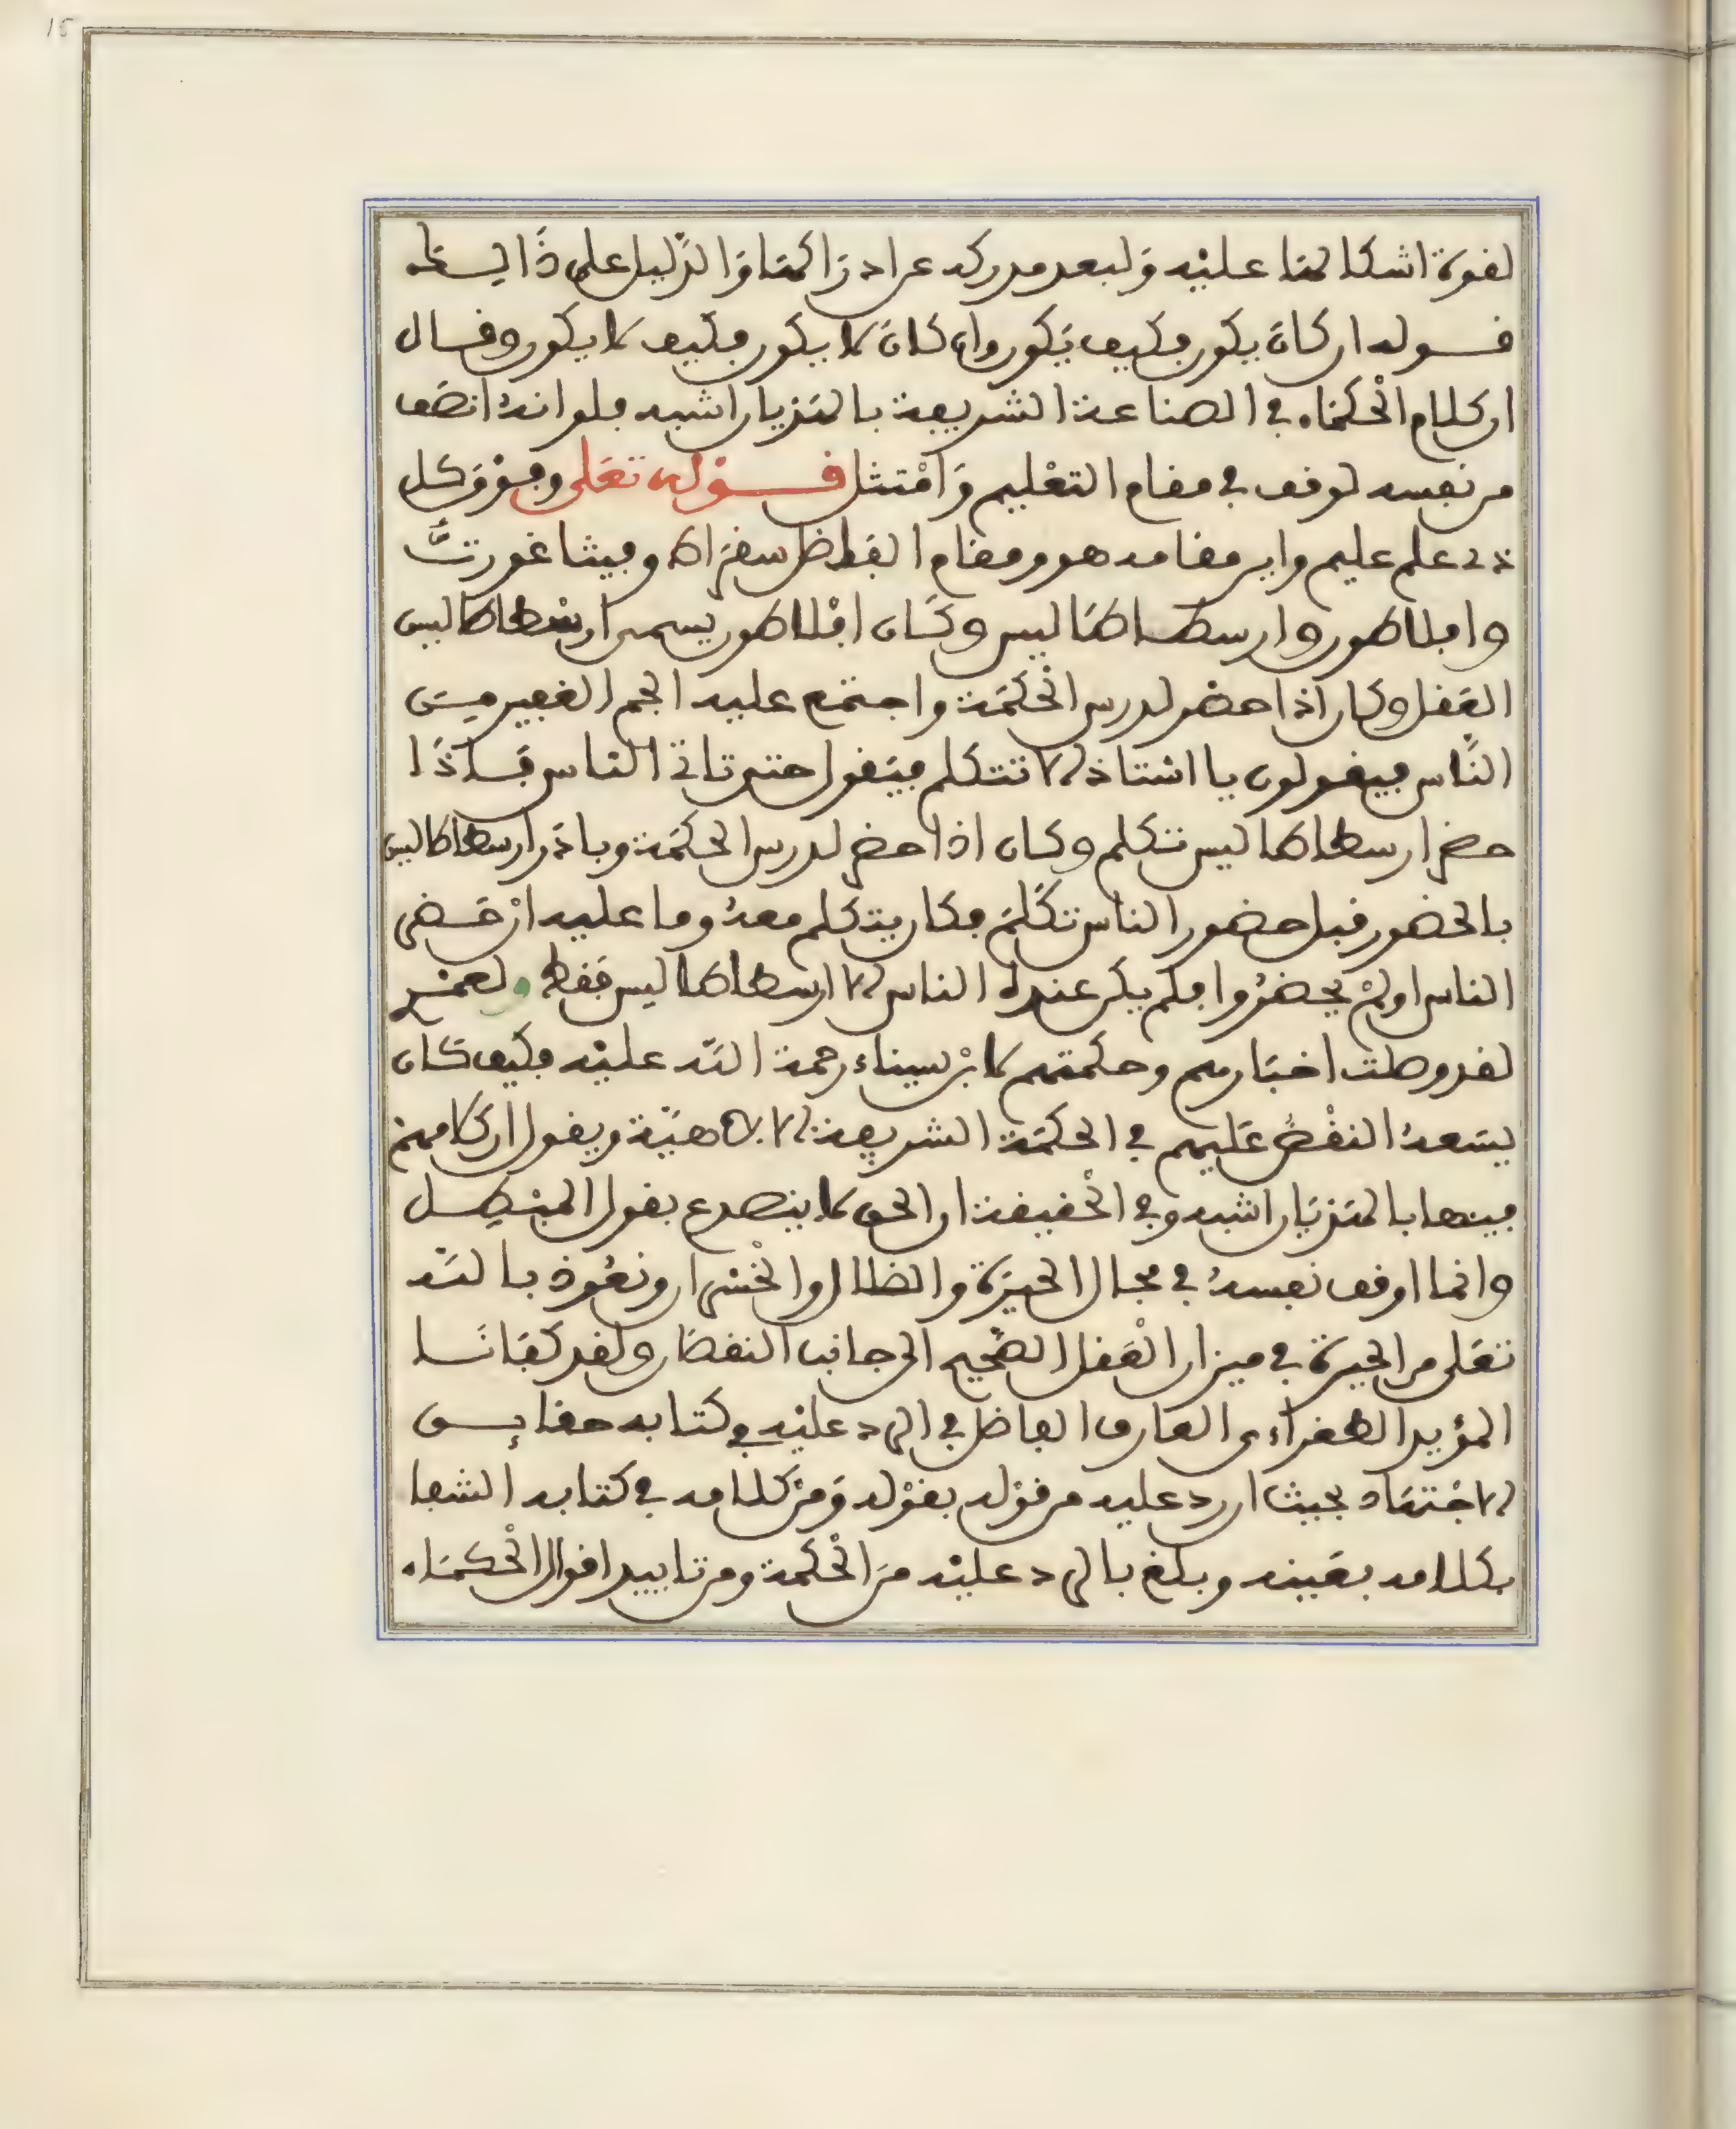 15
لقوة اشكالها عليه ولبعد مدركه عن ادراكها والدليل على ذالك
قوله ان كان يكون فكيف يكون وان كان لا يكون فكيف لا يكون وقال
ان كلام الحكماء في الصناعة الشريفة بالهذيان اشبه فلو انه انصف
من نفسه لوقف في مقام التعليم وامتثل قوله تعلى وفوق كل
ذي علم عليم واين مقامه هو ومقام الفاضل سقراط وفيثاغورث
وافلاطون وارسطاطاليس وكان افلاطون يسمى ارسطاطاليس
العقل وكان اذا حضر لدرس الحكمة واجتمع عليه الجم الغفير من
الناس فيقولون يا استاذ الا تتكلم فيقول حتى تاتي الناس فاذا
حضر ارسطاطاليس تكلم وكان اذا حضر لدرس الحكمة وبادر ارسطاطاليس
بالحضور قبل حضور الناس تكلم فكان يتكلم معه وما عليه ان حضر
الناس او لم يحضروا فلم يكن عنده الناس الا ارسطاطاليس فقط ولعمري
لقد وصلت اخبارهم وحكمتهم لابن سيناء رحمة الله عليه فكيف كان
يسعه النقض عليهم في الحكمة الشريفة الالاهية ويقول ان كلامهم
فيها بالهذيان اشبه وفي الحقيقة ان الحق لا ينصدع بقول المبطل
وانما اوقف نفسه في مجال الحيرة والضلال والخسران ونعوذ بالله
تعلى من الحيرة في ميزان العقل الصحيح الى جانب النقصان ولقد كفانا
المؤيد الطغراءي العارف الفاضل في الرد عليه في كتابه حقايق
الاجتهاد بحيث ان رد عليه من قوله بقوله ومن كلامه في كتابه الشفا
بكلامه بعينه وبلغ بالرد عليه من الحكمة ومن تاييد اقوال الحكماء